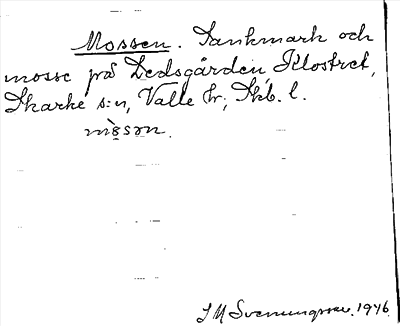 Mossen. Sankmark och
mosse på Dedsgården, Klostret,
Skarke s:n, Valle hr, Skb. l.
mȯsən.
J M Svenungsson. 1946.